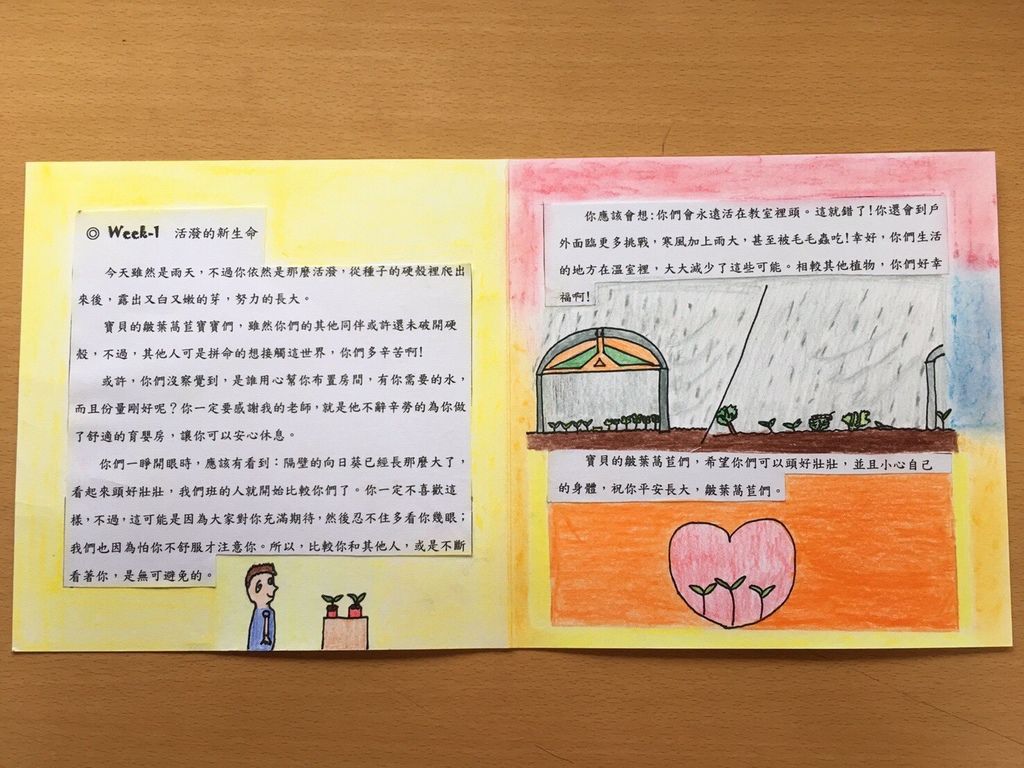 ◎ Week-1 活潑的新生命
今天雖然是雨天，不過你依然是那麼活潑，從種子的硬殼裡爬出
來後，露出又白又嫩的芽，努力的長大。
寶貝的皺葉萵苣寶寶們，雖然你們的其他同伴或許還未破開硬
殼，不過，其他人可是拼命的想接觸這世界，你們多辛苦啊!
或許，你們沒察覺到，是誰用心幫你布置房間，有你需要的水，
而且份量剛好呢？你一定要感謝我的老師，就是他不辭辛勞的為你做
了舒適的育嬰房，讓你可以安心休息。
你們一睜開眼時，應該有看到：隔壁的向日葵已經長那麼大了，
看起來頭好壯壯，我們班的人就開始比較你們了。你一定不喜歡這
樣，不過，這可能是因為大家對你充滿期待，然後忍不住多看你幾眼；
我們也因為怕你不舒服才注意你。所以，比較你和其他人，或是不斷
看著你，是無可避免的。
你應該會想:你們會永遠活在教室裡頭。這就錯了!你還會到戶
外面臨更多挑戰，寒風加上雨大，甚至被毛毛蟲吃!幸好，你們生活
的地方在溫室裡，大大減少了這些可能。相較其他植物，你們好幸
福啊!
寶貝的皺葉萵苣們，希望你們可以頭好壯壯，並且小心自己
的身體，祝你平安長大，皺葉萵苣們。